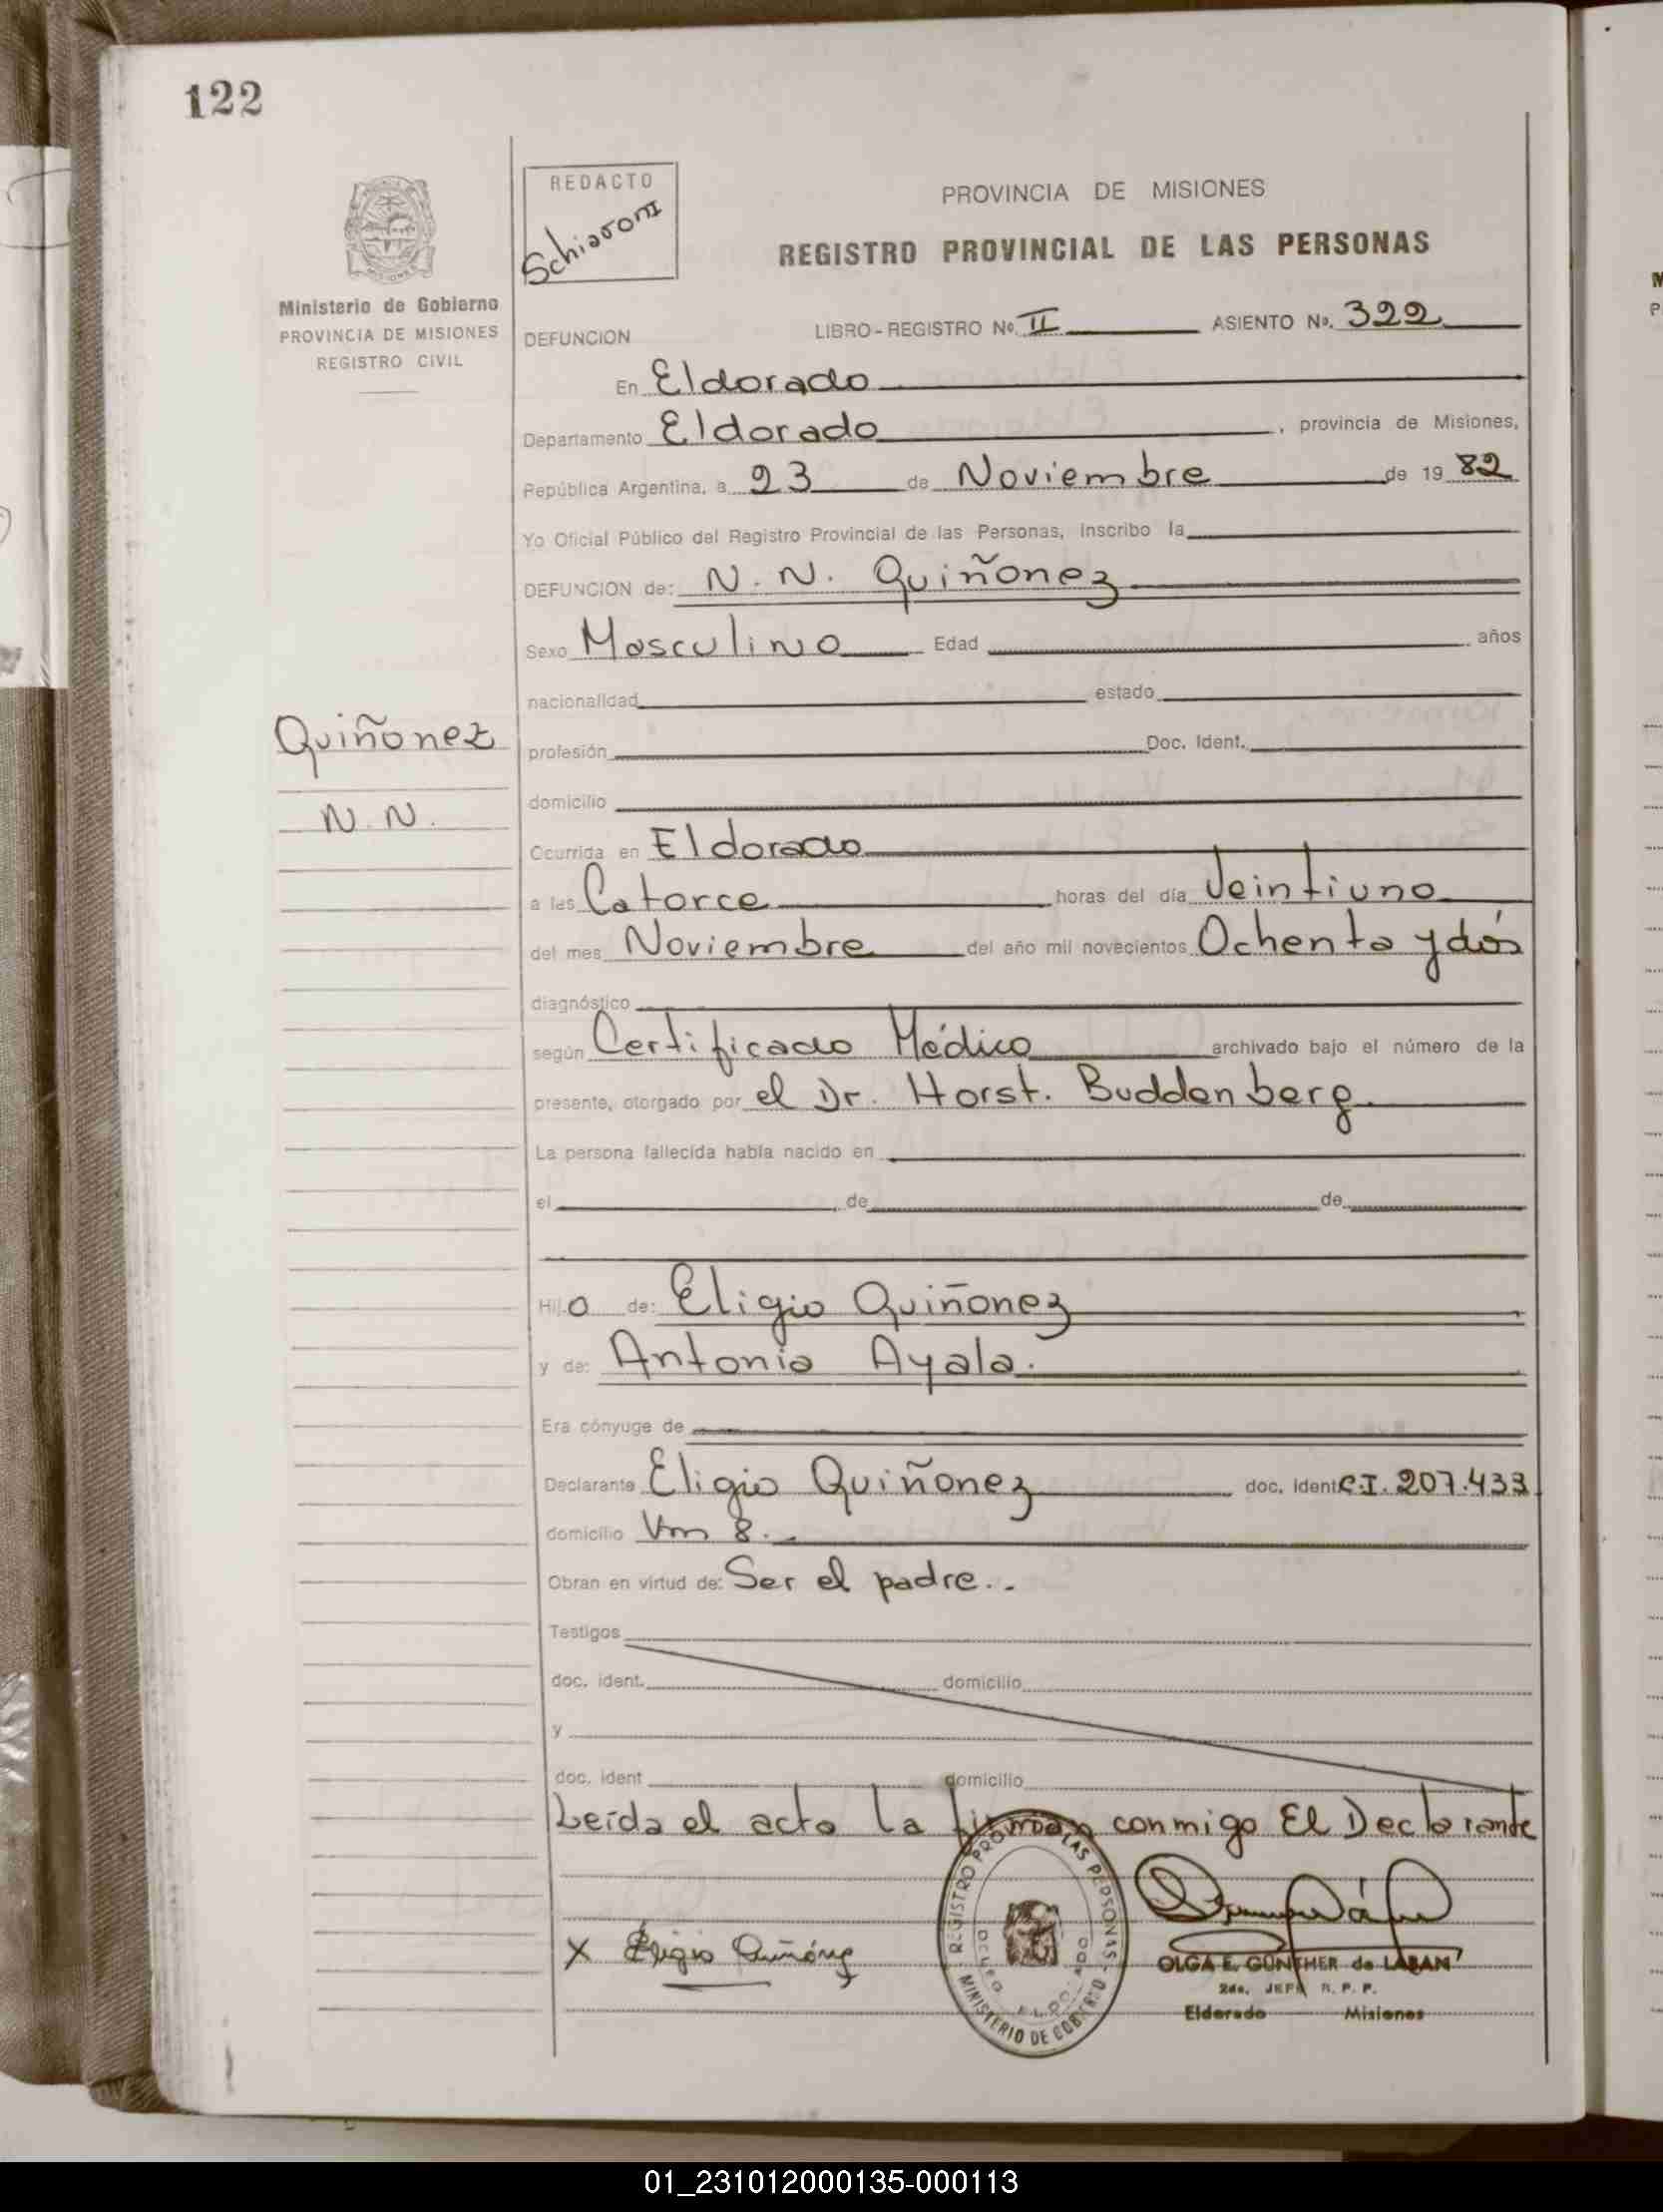 122
REDACTO
Schiaroni
MISIONES
Ministerio de Gobierno
PROVINCIA DE MISIONES
REGISTRO CIVIL
PROVINCIA DE MISIONES
REGISTRO PROVINCIAL DE LAS PERSONAS
DEFUNCION LIBRO-REGISTRO No. II ASIENTO No. 322
En Eldorado
Departamento Eldorado, provincia de Misiones,
República Argentina, a 23 de Noviembre de 1982
Yo Oficial Público del Registro Provincial de las Personas, inscribo la
DEFUNCION de: N. N. Quiñonez
Sexo Masculino Edad años
nacionalidad estado
Quiñonez
N. N.
profesión Doc. Ident.
domicilio
Ocurrida en Eldorado
a las Catorce horas del día Veintiuno
del mes Noviembre del año mil novecientos Ochenta y dós
diagnóstico
según Certificado Médico archivado bajo el número de la
presente, otorgado por el Dr. Horst. Buddenberg.
La persona fallecida había nacido en
el de de
Hijo de: Eligio Quiñonez
y de: Antonia Ayala.
Era cónyuge de
Declarante Eligio Quiñonez doc. ident C.I. 207.433
domicilio Km 8.
Obran en virtud de: Ser el padre..
Testigos
doc. ident. domicilio
y
doc. ident domicilio
Leída el acta la firman conmigo El Declarante
X Eligio Quiñónez
REGISTRO PRO LAS PERSONAS
MINISTERIO DE GOBIERNO
OLGA E. GÜNTHER de LABAN
2da. JEFA R. P. P.
Eldorado Misiones
01_231012000135-000113